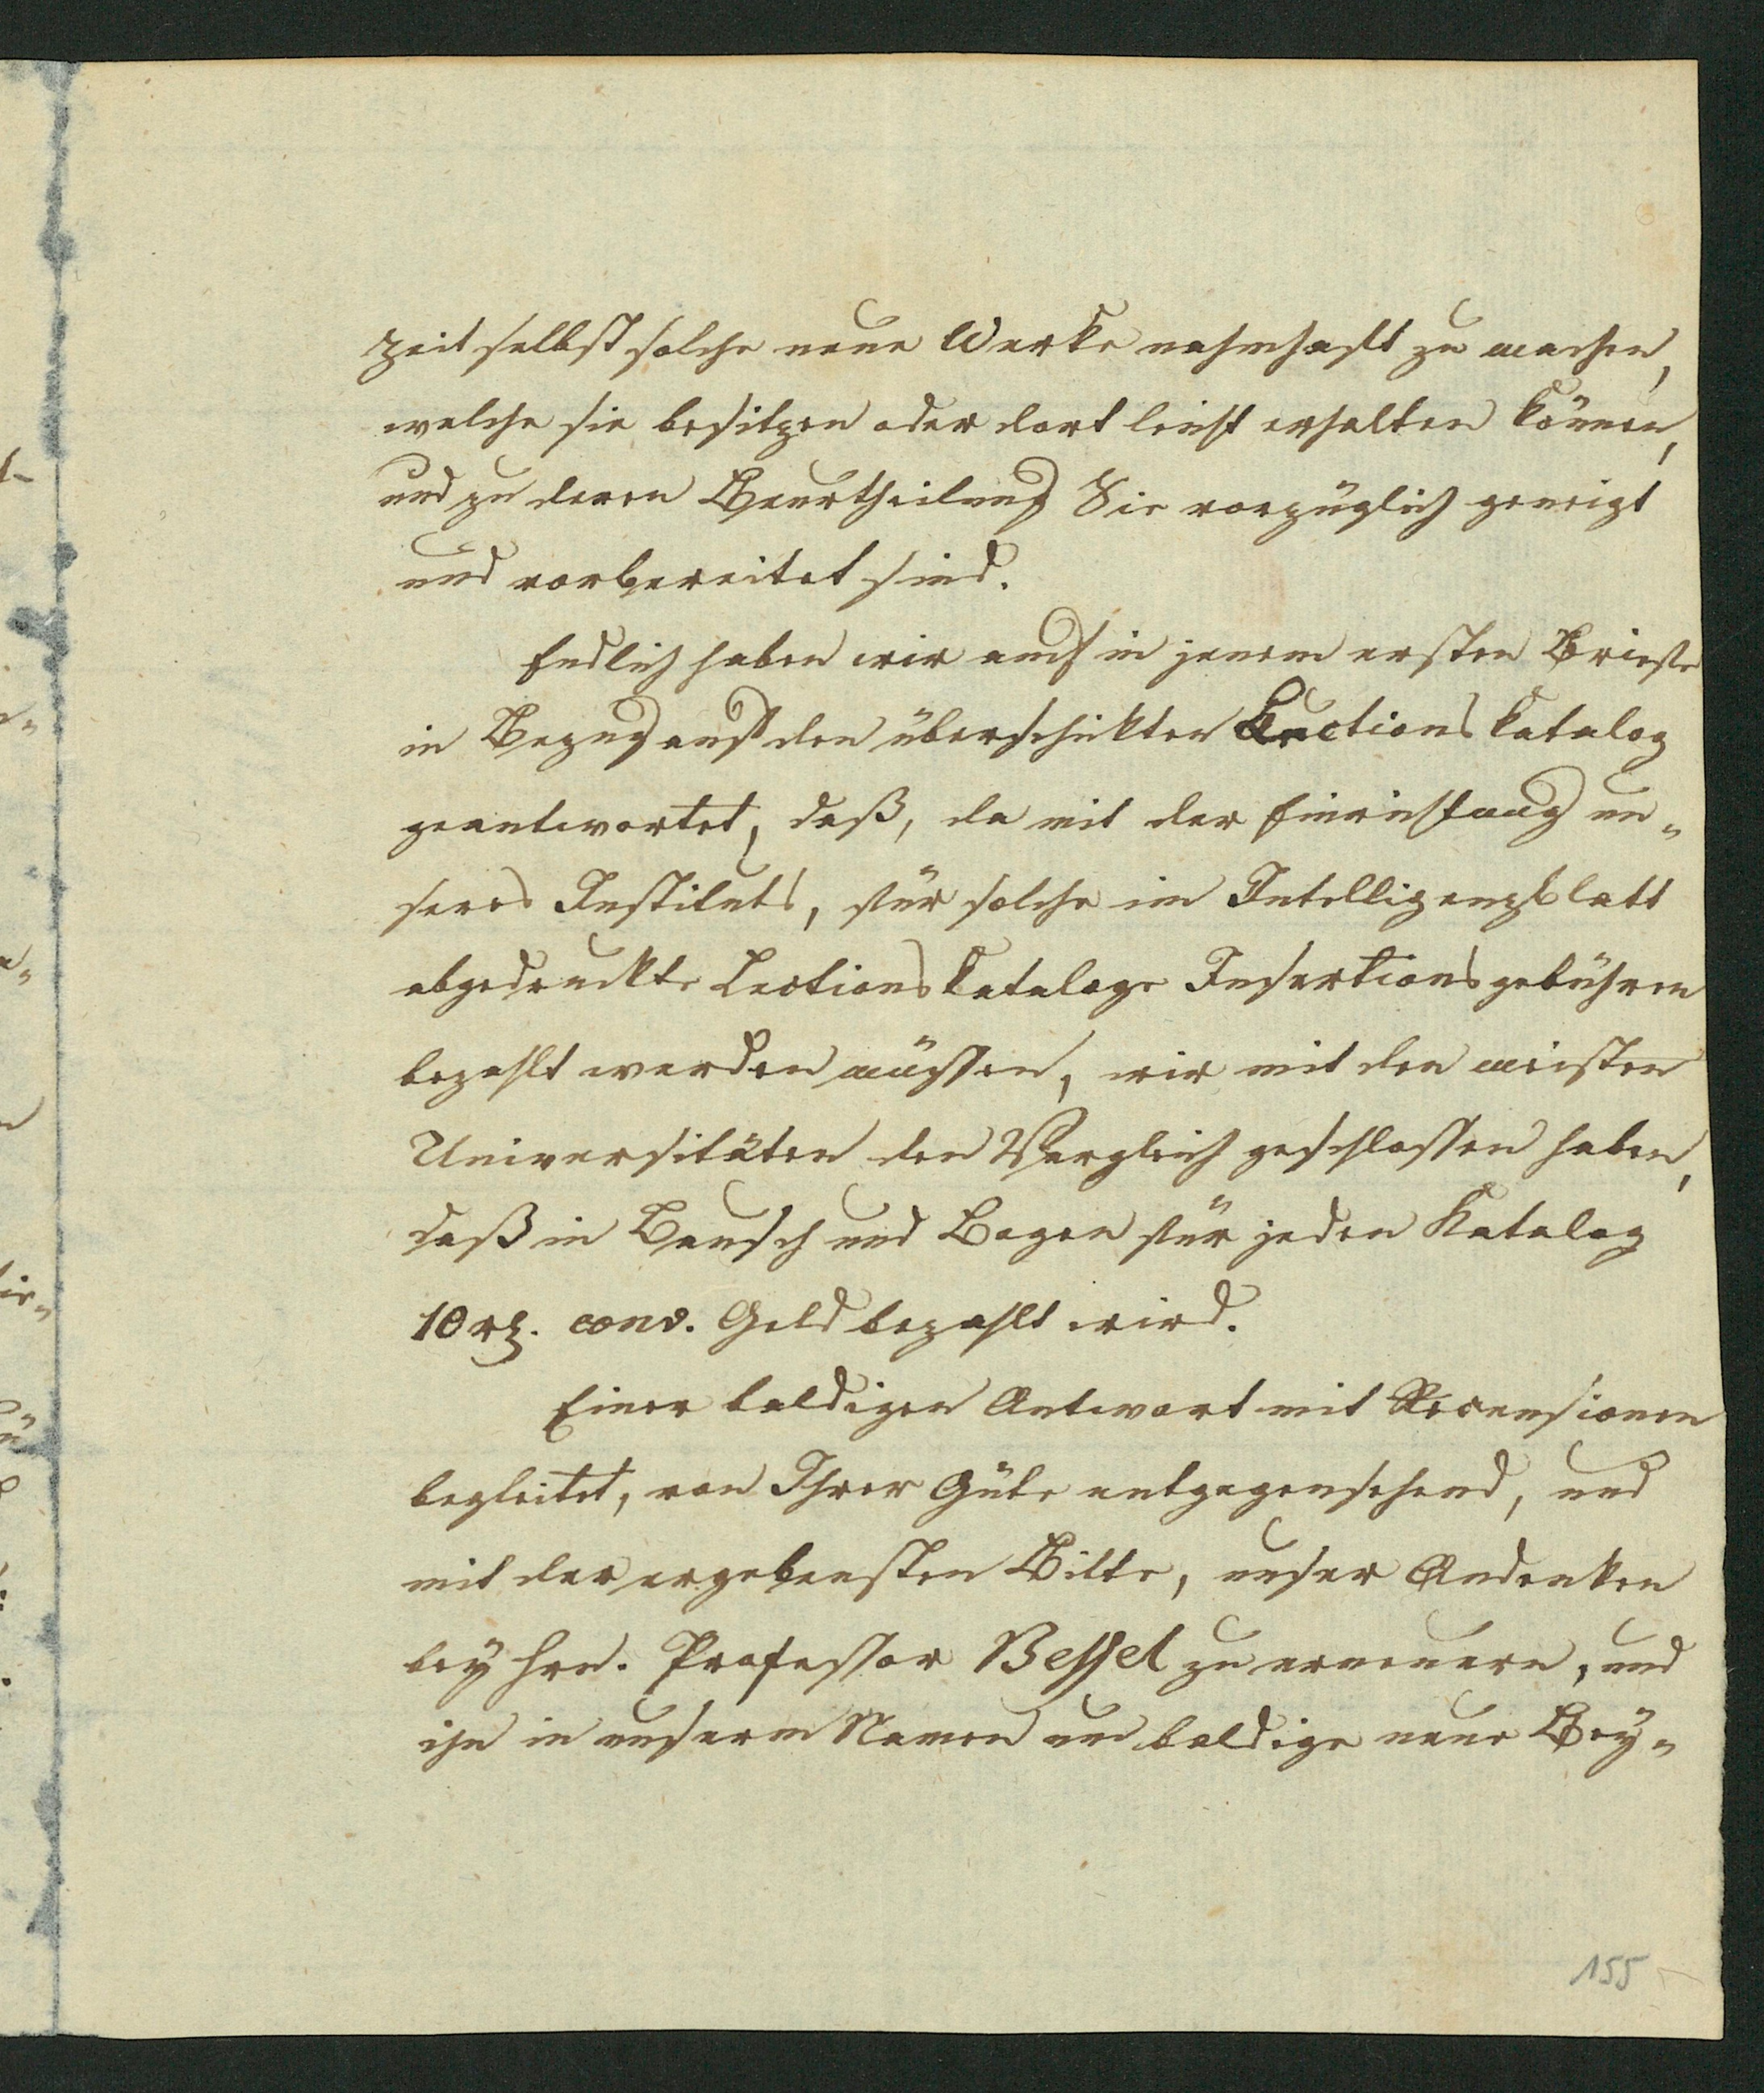 zeit selbst solche neue Werke nahmhaft zu machen,
welche sie besitzen oder dort leicht erhalten können,
und zu deren Beurtheilung Sie vorzüglich geneigt
und vorbereitet sind.
Endlich haben wir auch in jenem ersten Briefe
in Bezug auf den überschickten Lectionskatalog
geantwortet, daß, da mit der Einrichtung un-
seres Instituts, für solche im Intelligenzblatt
abgedruckte Lectionskataloge Insertionsgebühren
bezahlt werden müssen, wir mit den meisten
Universitäten den Vergleich geschlossen haben,
daß in Bausch und Bogen für jeden Katalog
10 rt. conv. Geld bezahlt wird.
Einer baldigen Antwort mit Recensionen
begleitet, von Ihrer Güte entgegensehend, und
mit der ergebensten Bitte, unser Andenken
bey Hrn. Professor Bessel zu erneuern, und
ihn in unserm Namen um baldige neue Bey-
155